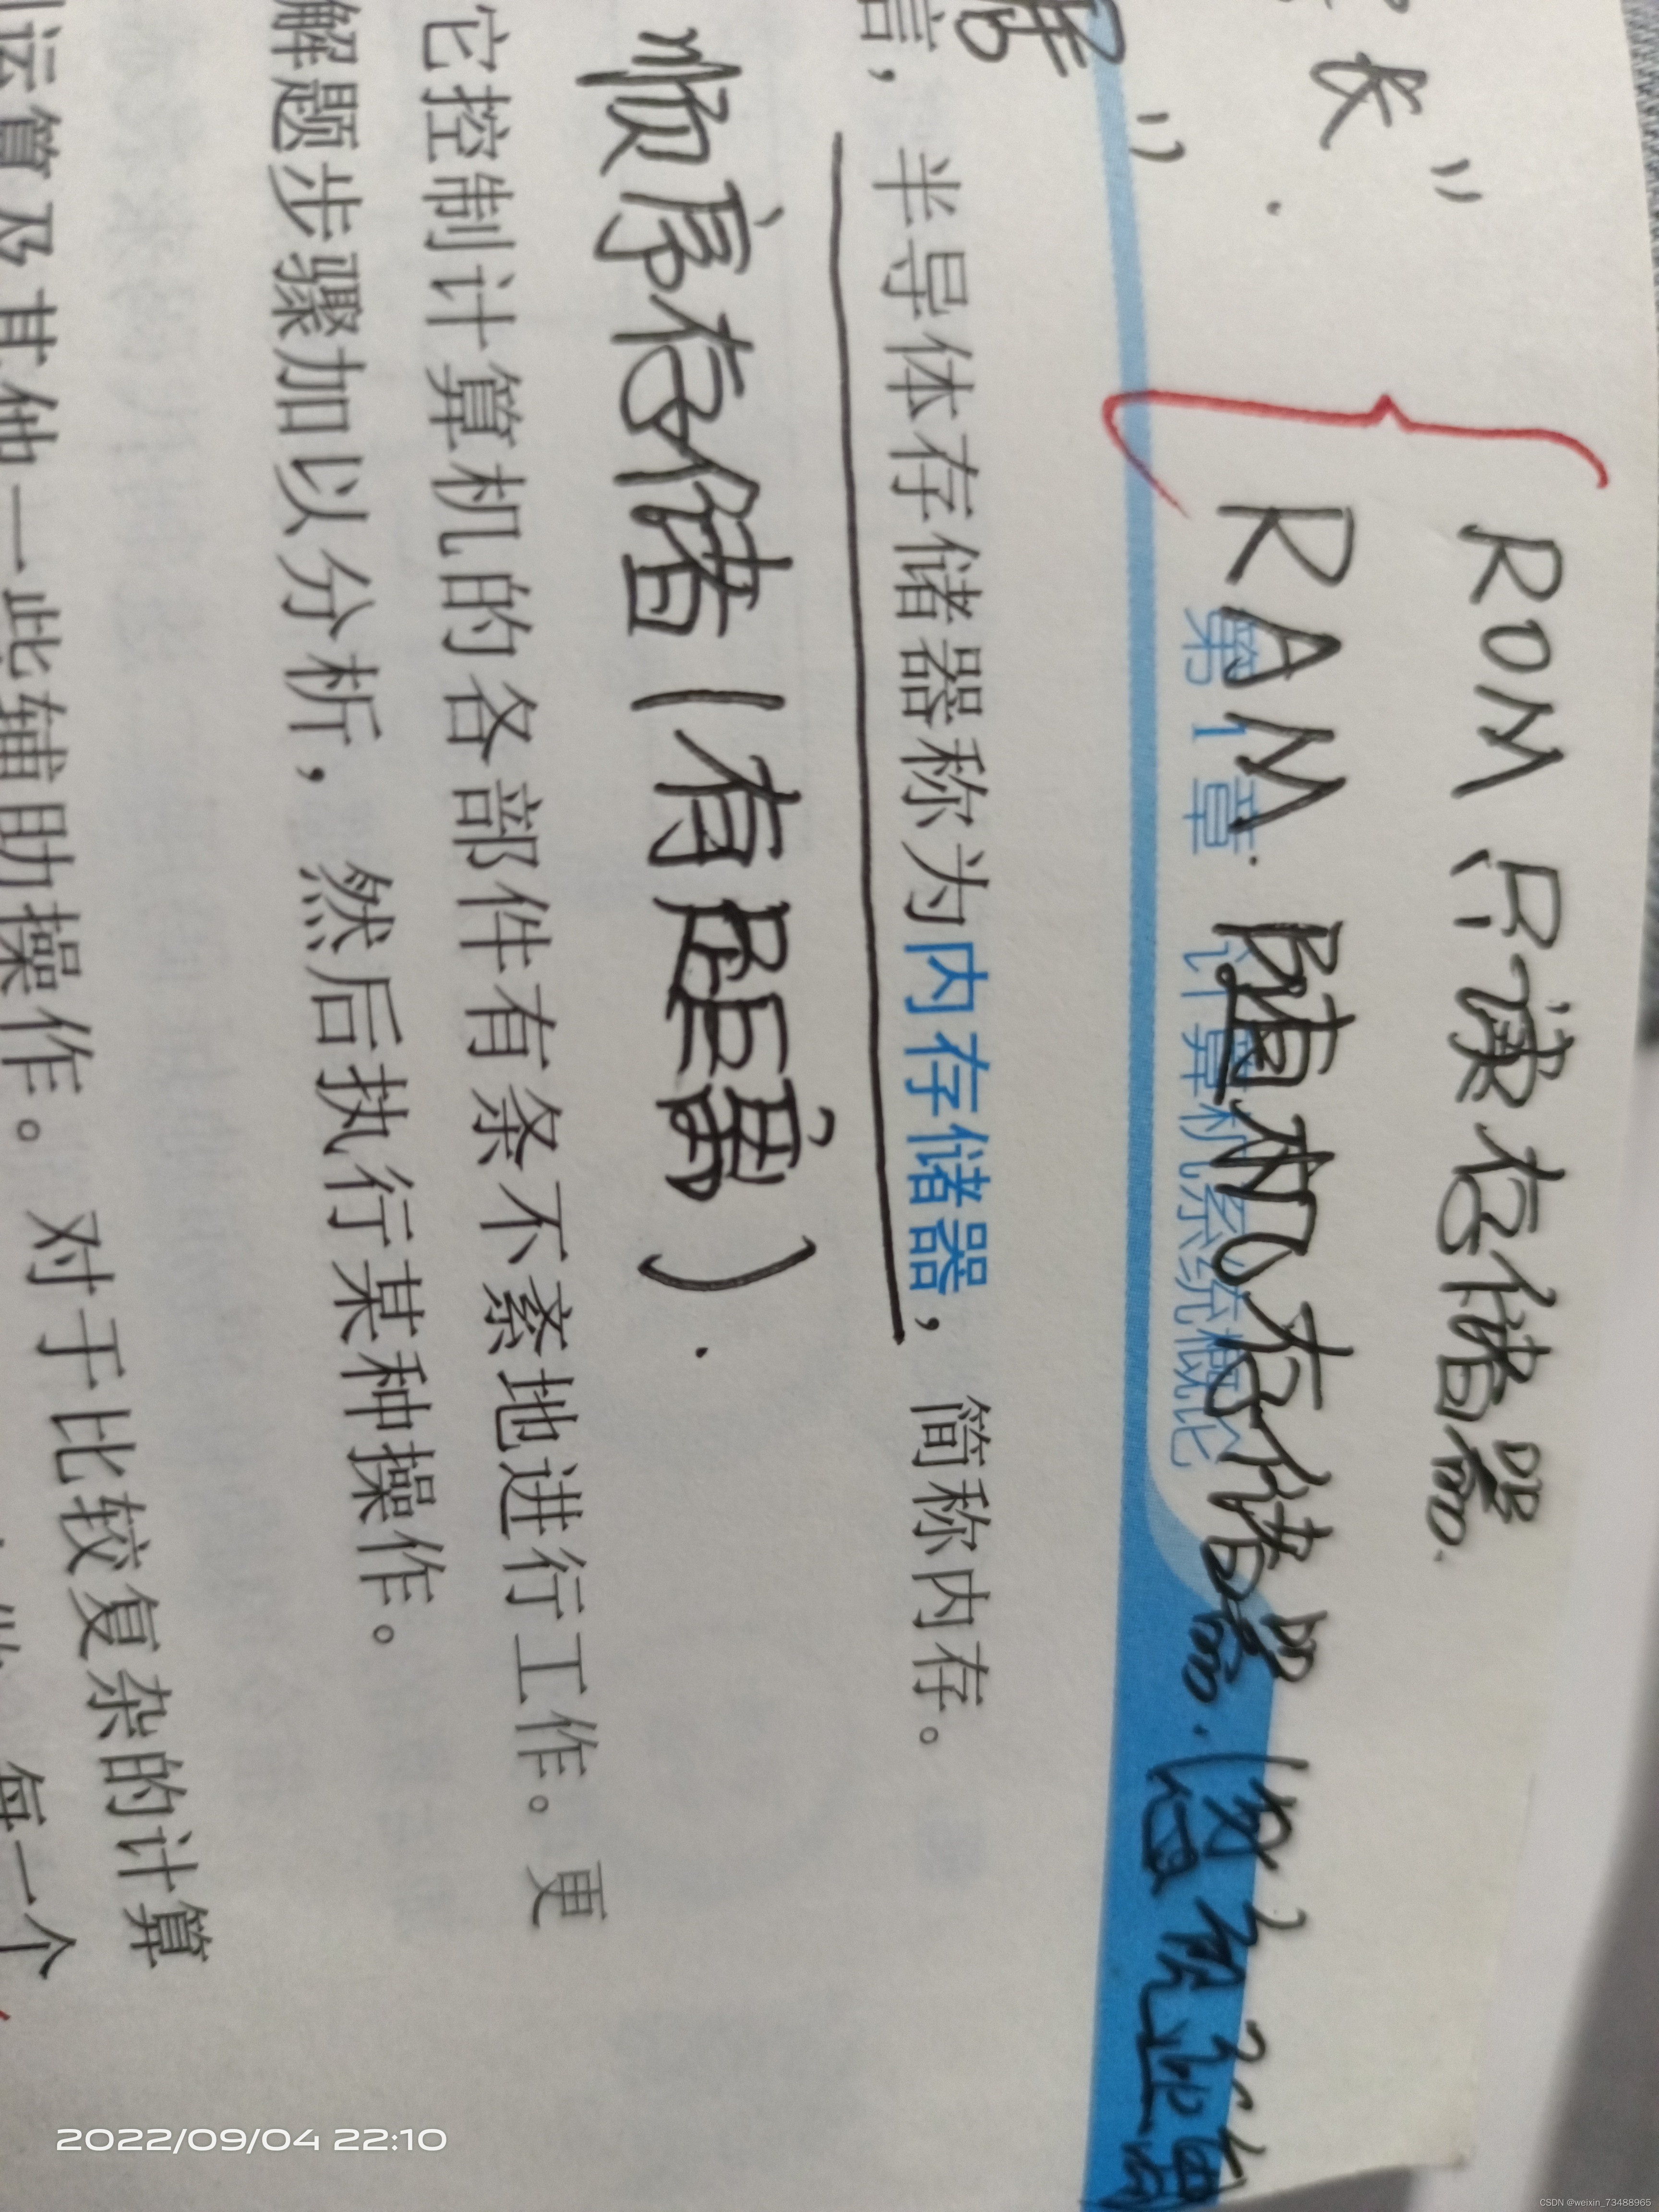 长”
ROM 只读存储器.
RAM 随机存储器.(没有距离
第1章 计算机系统概论
”.
言，半导体存储器称为内存储器，简称内存。
顺序存储(有距离).
它控制计算机的各部件有条不紊地进行工作。更
解题步骤加以分析，然后执行某种操作。
运算及其他一些辅助操作。对于比较复杂的计算
每一个
2022/09/04 22:10
CSDN @weixin_73488965